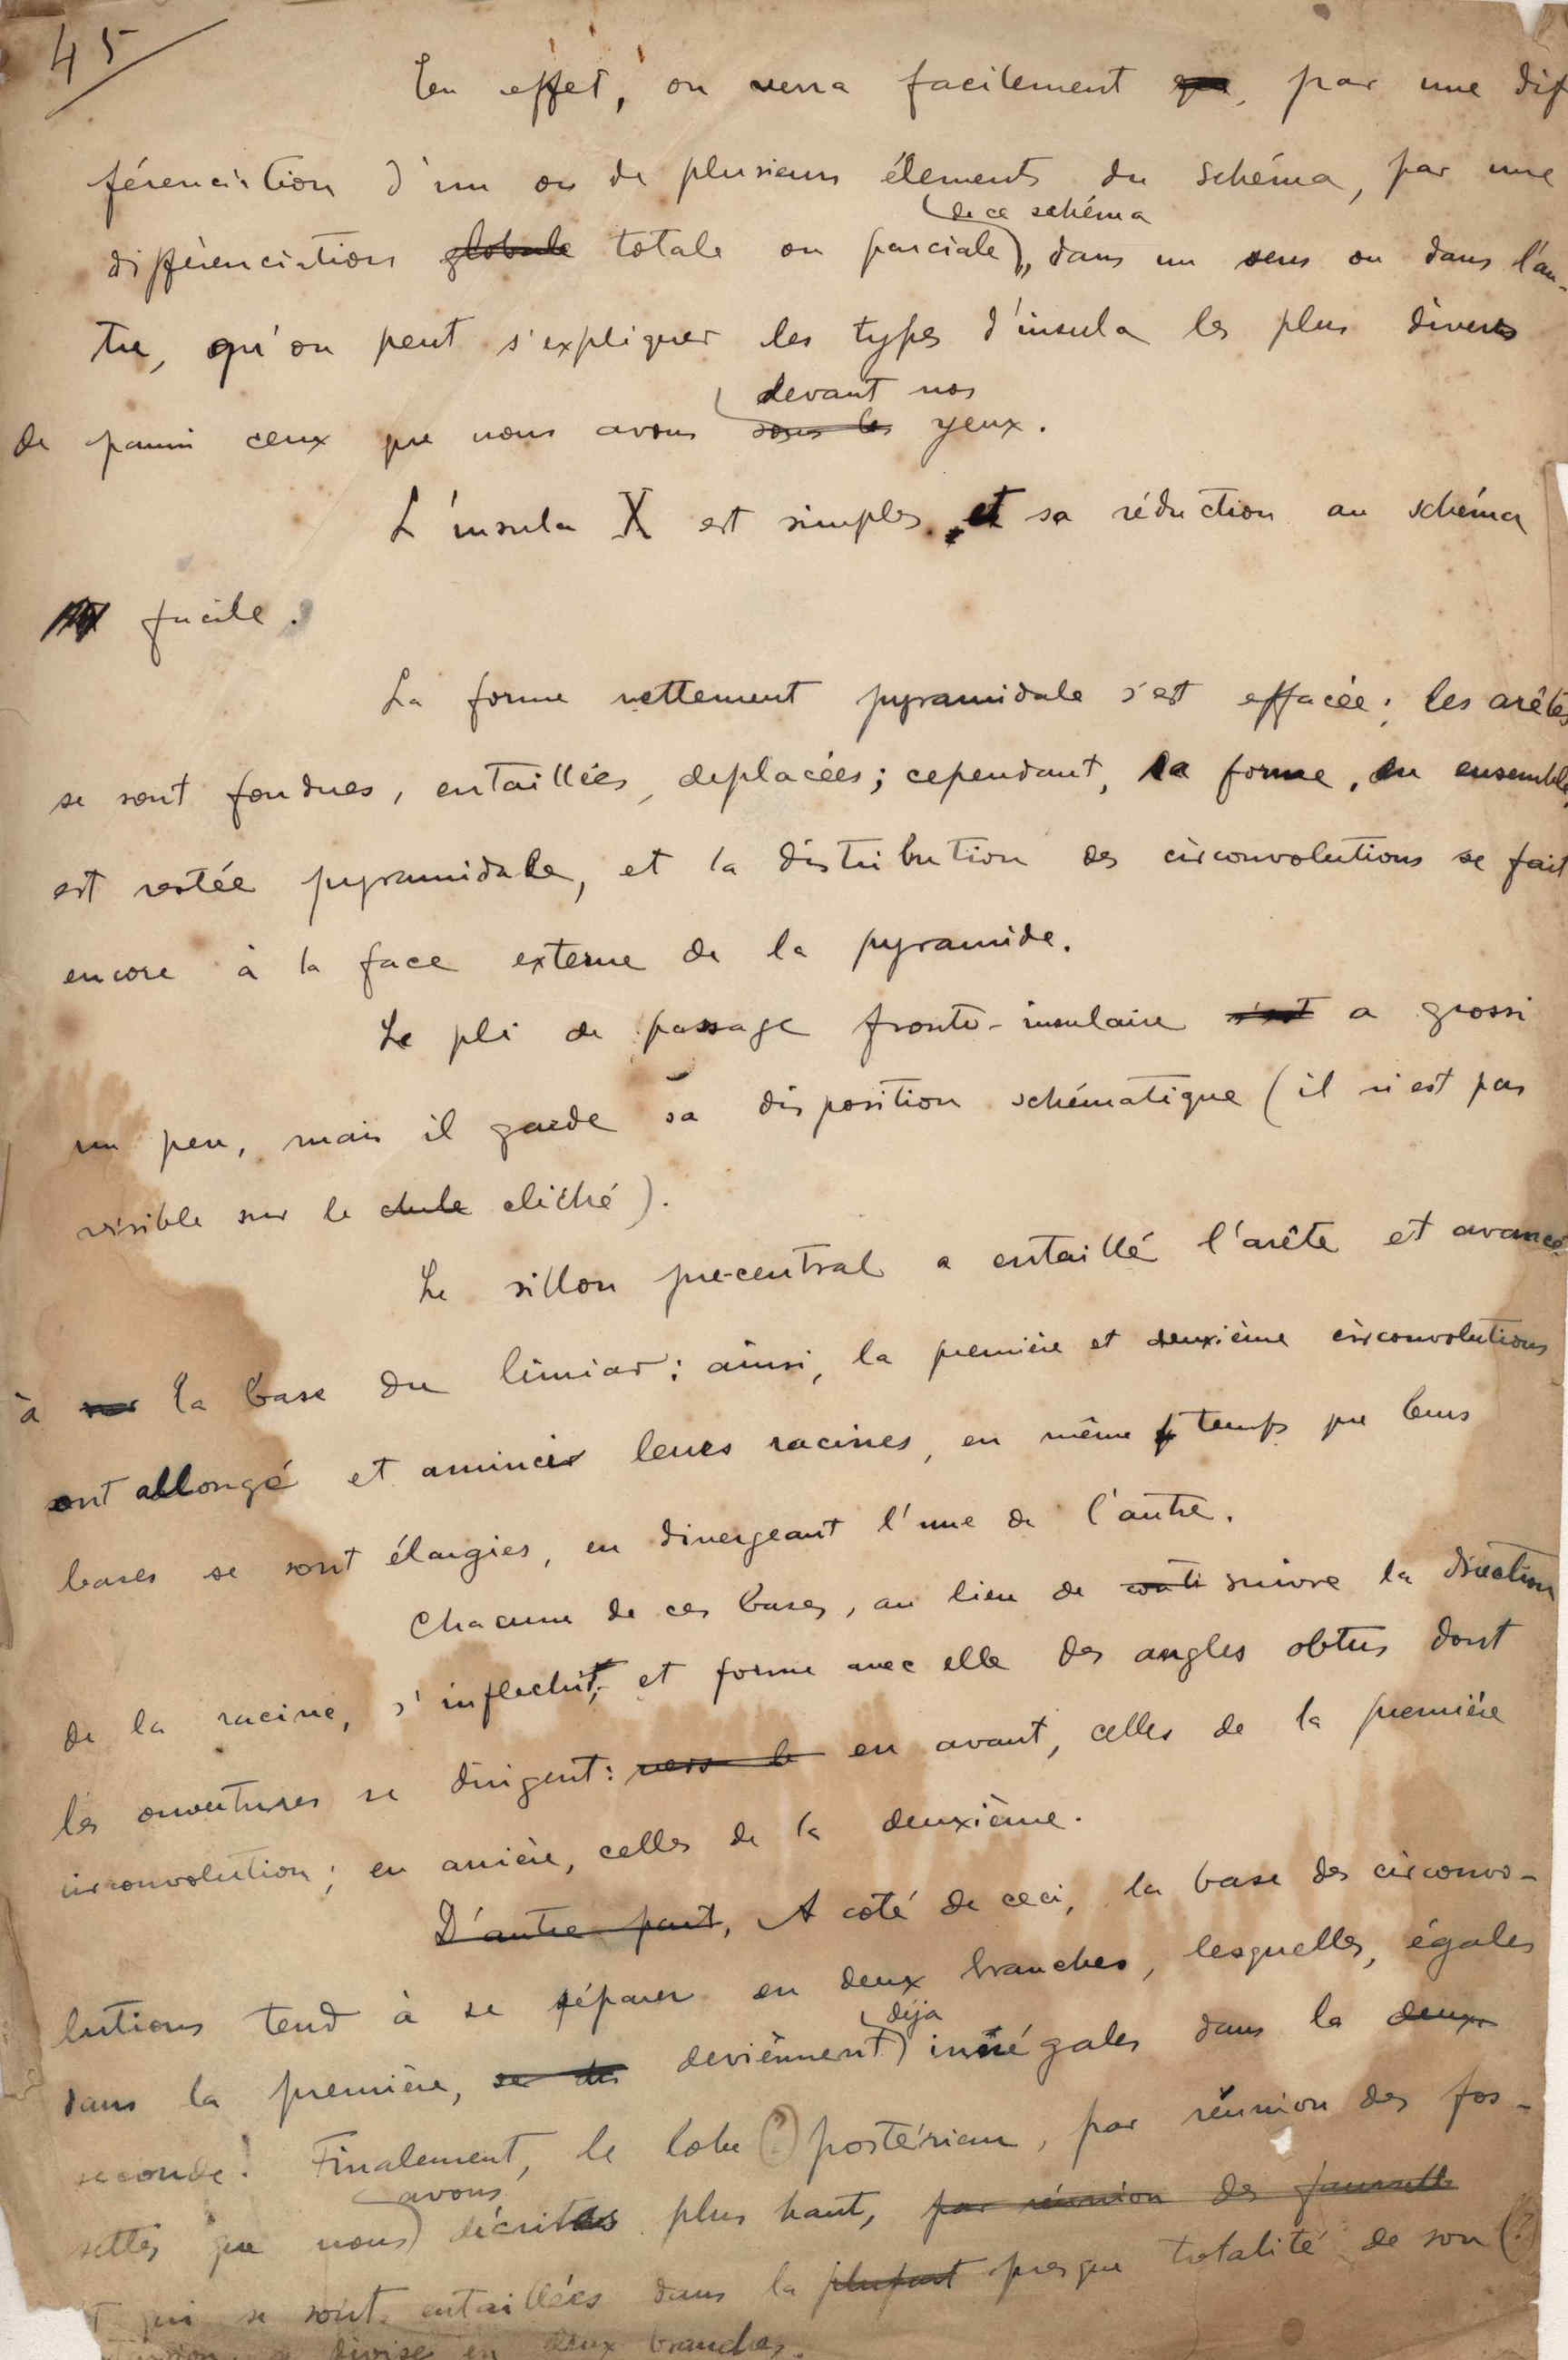 45
En effet, on verra facilement que, par une dif
férenciation d'un ou de plusieurs élements du schéma, par une
de ce schéma
différenciation globale totale ou parciale, dans un sens ou dans l'au-
tre, qu'on peut s'expliquer les types d'insula les plus divers
devant nos
de parmi ceux que nous avons sous les yeux.
L'insula X est simples, et sa réduction au schéma
facile.
La forme nettement pyramidale s'est effacée; les arêtes
se sont fondues, entaillées, deplacées; cependant, la forme, en ensemble,
est restée pyramidale, et la distribution des circonvolutions se fait
encore à la face externe de la pyramide.
Le pli de passage fronto-insulaire s'est a grossi
un peu, mais il garde sa disposition schématique (il n'est pas
visible sur le cliché).
Le sillon pre-central a entaillé l'arête et avancé
à la base du limiar: ainsi, la première et deuxième circonvolutions
ont allongé et aminci leurs racines, en même temps que leurs
bases se sont élargies, en divergeant l'une de l'autre.
Chacune de ces bases, au lieu de suivre la direction
de la racine, s'inflechit, et forme avec elle des angles obtus dont
les ouvertures se dirigent: vers le en avant, celles de la première
circonvolution; en arrière, celles de la deuxième.
D'autre part, A coté de ceci, la base des circonvo-
lutions tend à se séparer en deux branches, lesquelles, égales
déja
dans la première, se deviènnent inégales dans la deux
seconde. Finalement, le lobe (?) postérieur, par réunion des fos-
avons
settes que nous décrites plus haut, par réunion des
qui se sont entaillées dans la plupart presque totalité de son (?)
divise en deux branches.